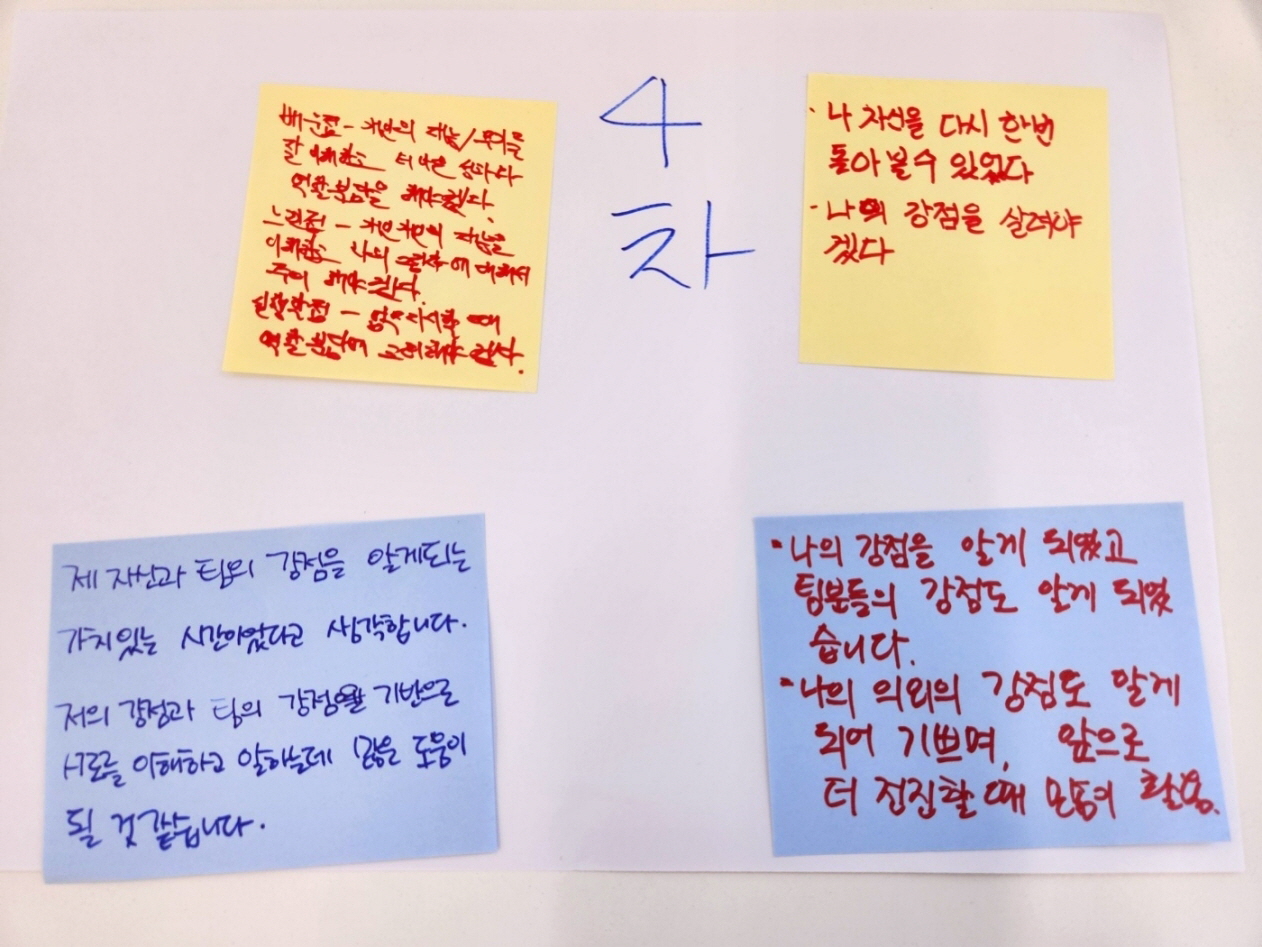 4
차
배운점 - 개인의 재능/
잘 이해하고 더 나은
역할분담을 해야겠다.
느낀점 - 개인 개인의 재능을
이해하고 나의 에 대해서
해야겠다.
실행할점 - 때
역할분담에 겠다.
· 나 자신을 다시 한번
돌아 볼수 있었다
· 나의 강점을 살려야
겠다
제 자신과 팀의 강점을 알게되는
가치있는 시간이었다고 생각합니다.
저의 강점과 팀의 강점을 기반으로
서로를 이해하고 일하는데 많은 도움이
될 것 같습니다.
· 나의 강점을 알게 되었고
팀분들의 강점도 알게 되었
습니다.
· 나의 의외의 강점도 알게
되어 기쁘며, 앞으로
더 전진할 때 활용.